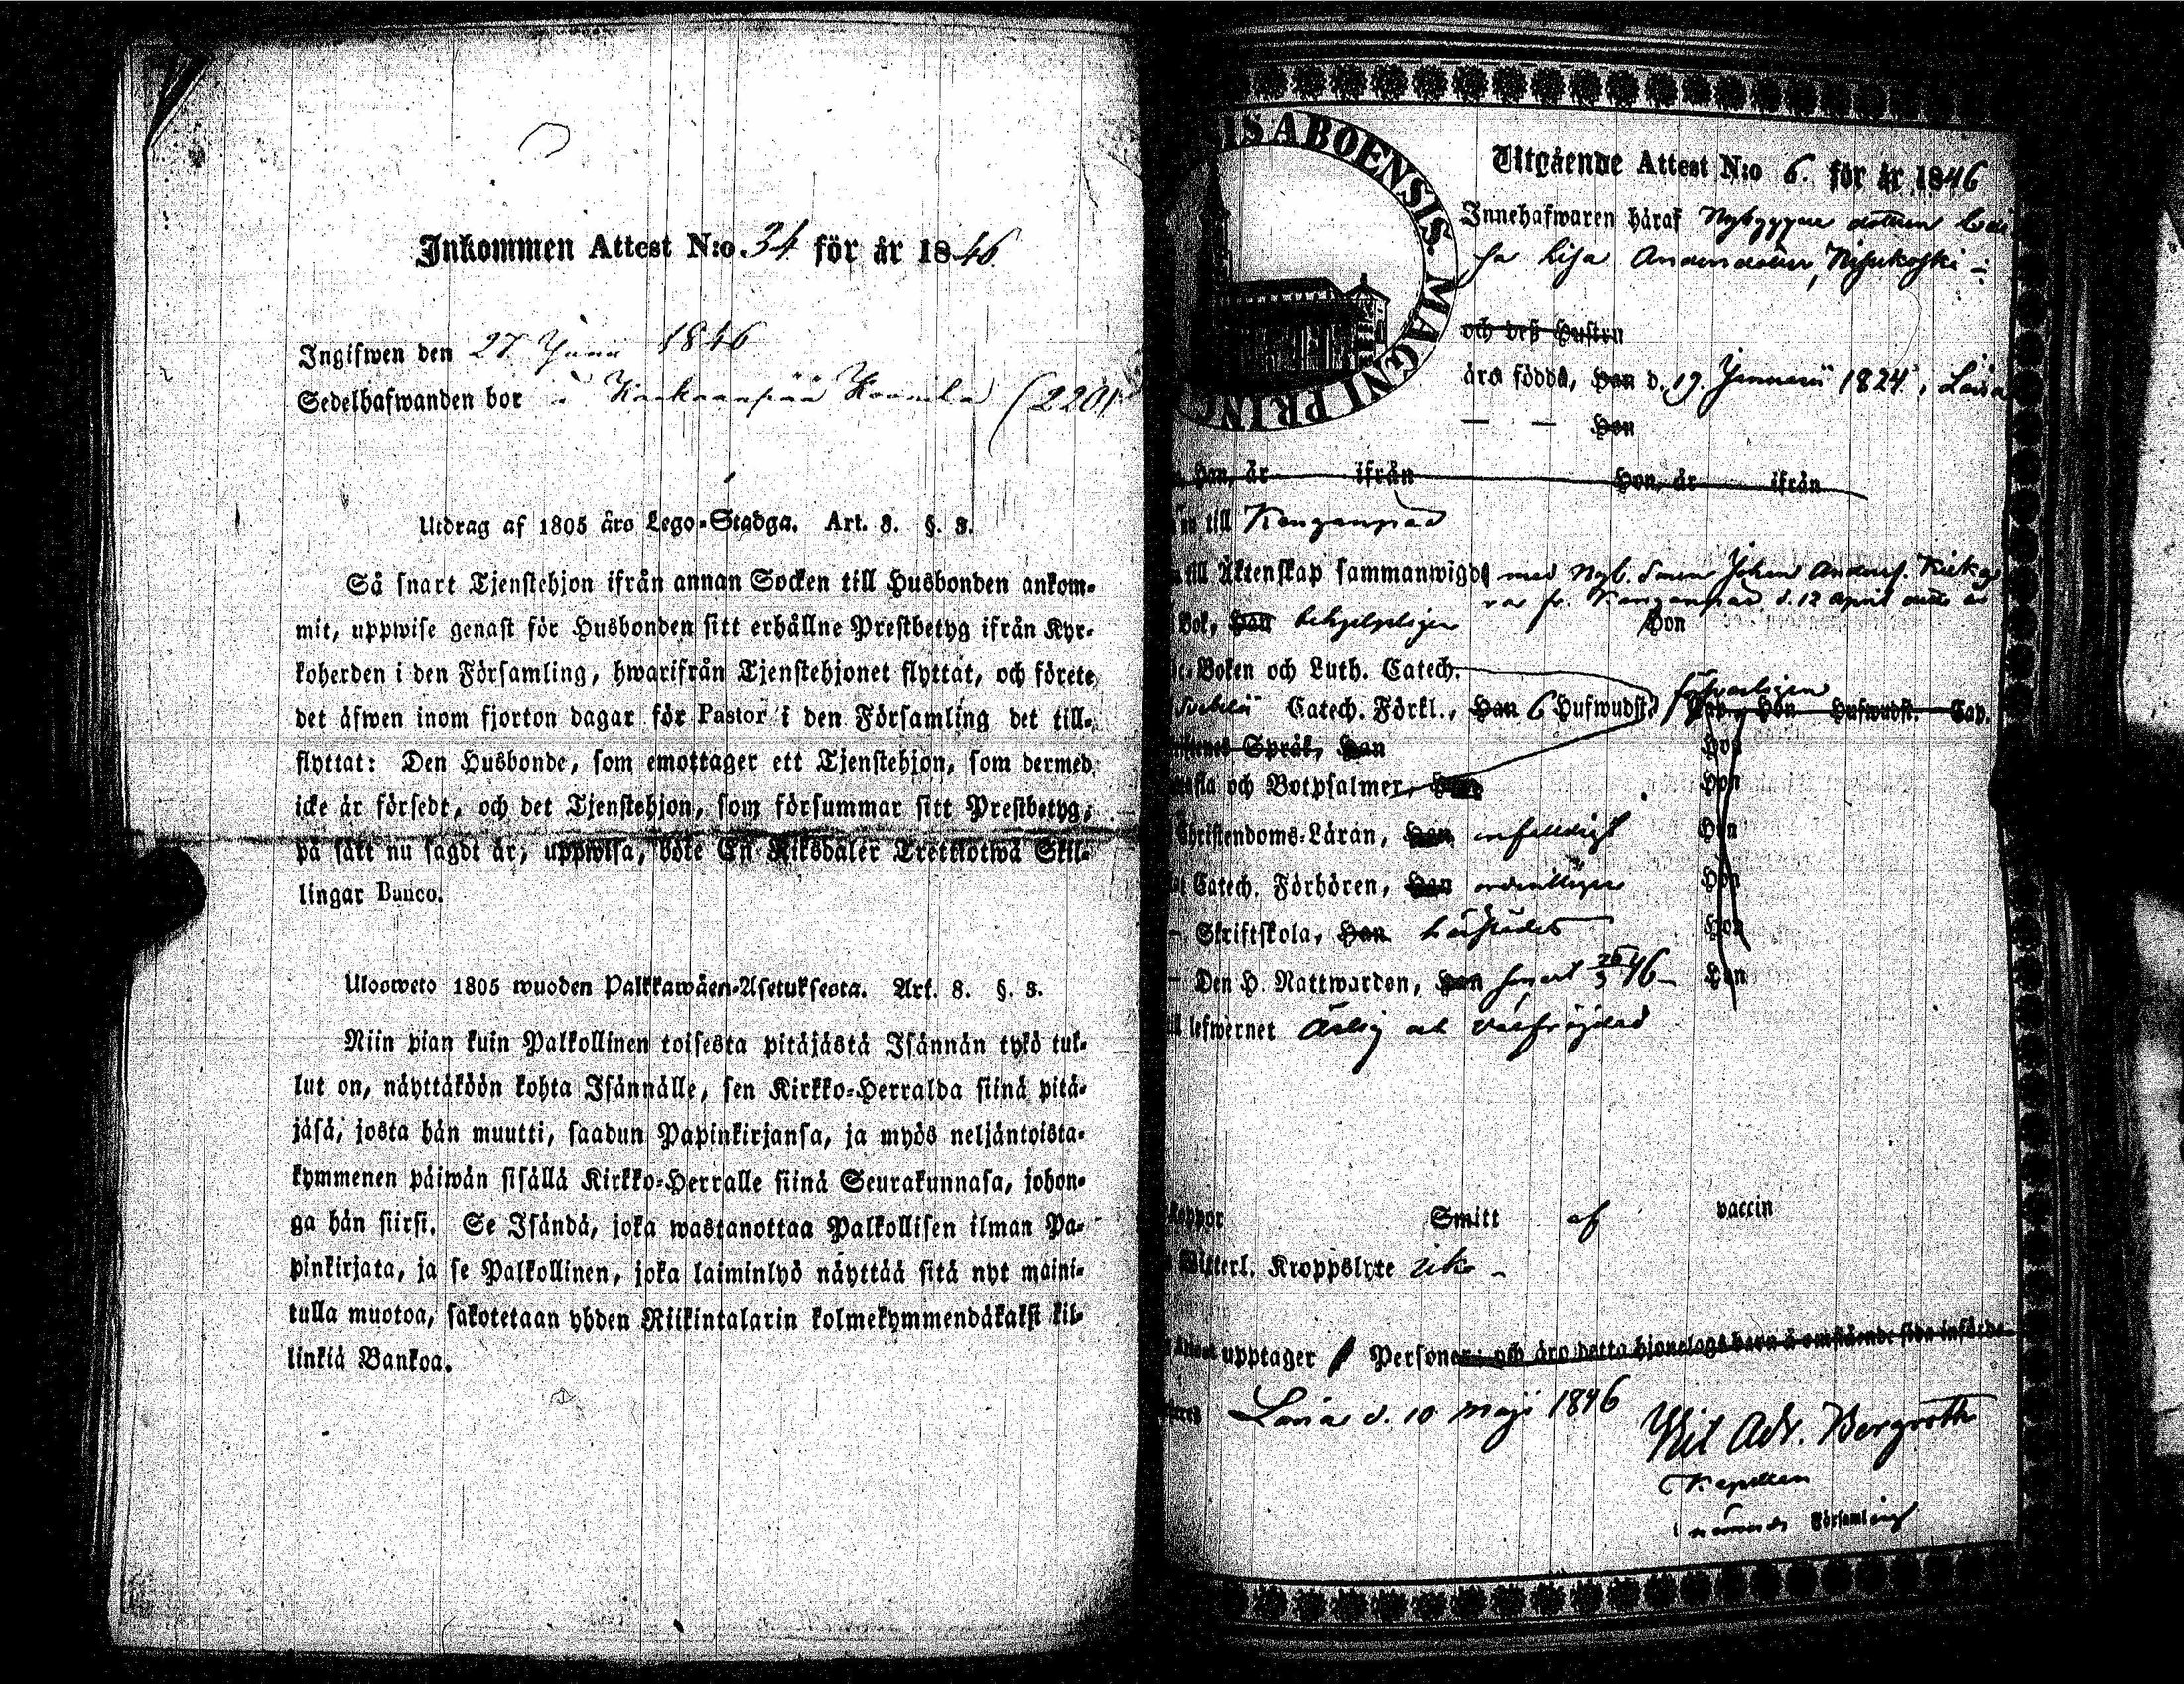 Inkommen Attest N:o 34 för år 1846.
Ingifwen den 27 Juni 1846
Sedelhafwanden bor i Kankaanpää (2201
Utdrag af 1805 års Lego-Stadga. Art. 8. §. 3.
Så snart Tjenstehjon ifrån annan Socken till Husbonden ankom-
mit, uppwise genast för Husbonden sitt erhållne Prestbetyg ifrån Kyr-
koherden i den Församling, hwarifrån Tjenstehjonet flyttat, och förete
det äfwen inom fjorton dagar för Pastor i den Församling det till-
flyttat: Den Husbonde, som emottager ett Tjenstehjon, som dermed
icke är försedt, och det Tjenstehjon, som försummar sitt Prestbetyg,
på sätt nu sagdt är, uppwisa, böte En Riksdaler Trettiotwå Skil-
lingar Banco.
Uloosweto 1805 wuoden Palkkawäen-Asetuksesta. Art. 8. §. 3.
Niin pian kuin Palkollinen toisesta pitäjästä Isännän tykö tul-
lut on, näyttäköön kohta Isännälle, sen Kirkko-Herralda siinä pitä-
jäsä, josta hän muutti, saadun Papinkirjansa, ja myös neljäntoista-
kymmenen päiwän sisällä Kirkko-Herralle siinä Seurakunnasa, johon-
ga hän siirsi. Se Isändä, joka wastanottaa Palkollisen ilman Pa-
pinkirjata, ja se Palkollinen, joka laiminlyö näyttää sitä nyt maini-
tulla muotoa, sakotetaan yhden Riikintalarin kolmekymmendäkaksi kil-
linkiä Bankoa.
ISABOENSIS. MAGNI PRINC
Utgående Attest N:o 6. för år 1846
Innehafwaren häraf Nybyggare dottren
Lisa Andersdotter,
och deß Hustru
äro födda, Han d. 19. Januarii 1824, i Lavia
— — Hon
Han, år ifrån Hon, år ifrån
till Kanganpää
till Äktenskap sammanwigde med Nyb. Sonen Johan Anders.
fr. Kanganpää d. 12 April
Bok, Han behjelpligen Hon
Boken och Luth. Catech.
Catech. Förkl., Han 6 Hufwudst. försvarligen Cap. Hon Hufwudst. Cap.
Språk, Han Hon
och Botpsalmer, Han Hon
Christendoms-Läran, Han enfaldigt Hon
Catech. Förhören, Han ordentligen Hon
Skriftskola, Han Hon
Den H. Nattwarden, Han senast 26/3 46 Hon
lefwernet Ärlig och välfrejdad
koppor Smitt af vaccin
Kroppslyte icke
upptager 1 Personer och äro detta hjonelags barn å omstående sida införde
Lavia d. 10 Maji 1846
Wil. Adr. Bergroth
Kapellan
i nämnde Församling